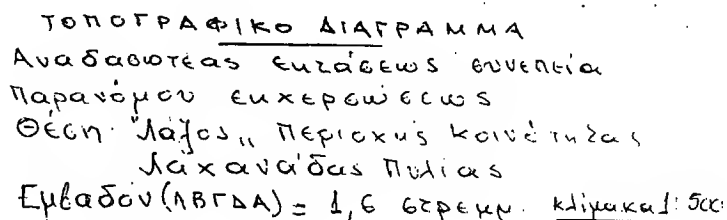 ΤΟΠΟΓΡΑΦΙΚΟ ΔΙΑΓΡΑΜΜΑ
Αναδασωτέας εκτάσεως συνεπεία
Παρανόμου εκχερσώσεως
Θέση "Λάζος" Περιοχής Κοινότητας
Λαχανάδας Πυλίας
Εμβαδόν (ΑΒΓΔΑ) = 1,6 στρεμμ. κλίμακα 1: